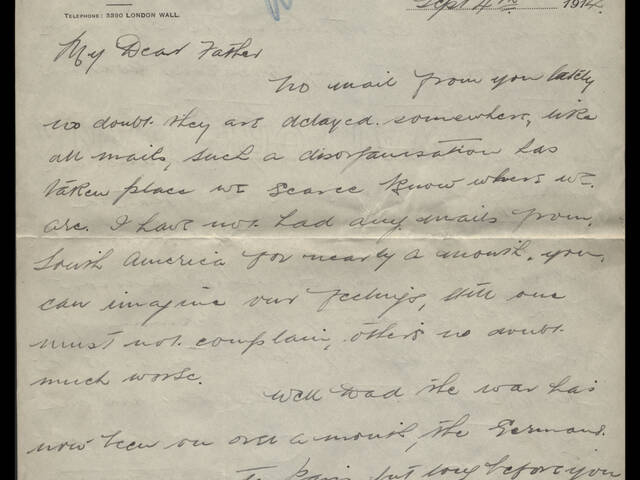 Telephone: 5390 London Wall.
Sept 4th 1914.
My Dear Father
No mail from you lately
no doubt they are delayed somewhere, like
all mails, such a disorganisation has
taken place we scarce know where we
are. I have not had any mails from
South America for nearly a month, you
can imagine our feelings, still one
must not complain, others no doubt
much worse.
Well Dad the war has
now been on over a month, the Germans
to Paris, but long before you